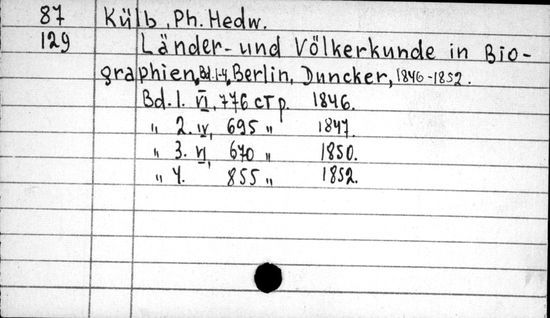 87 Külb, Ph. Hedw.
129 Länder- und Völkerkunde in Bio-
graphien, Bd. 1-4, Berlin, Duncker, 1846-1852.
Bd. 1. VI, 776 стр. 1846.
" 2. IV, 695 " 1847.
" 3. VI, 670 " 1850.
" 4. 855 " 1852.